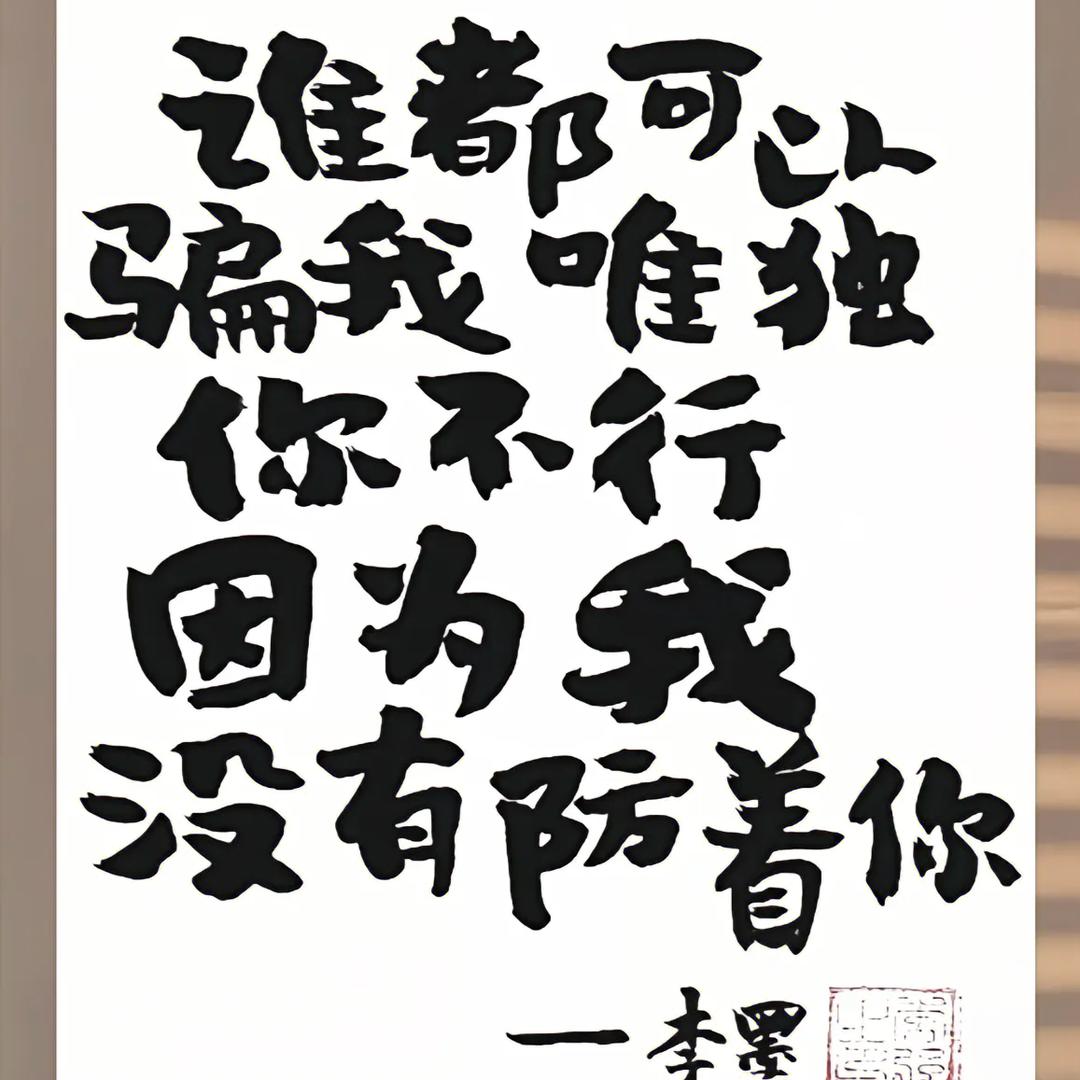 谁都可以
骗我唯独
你不行
因为我
没有防着你
一李墨